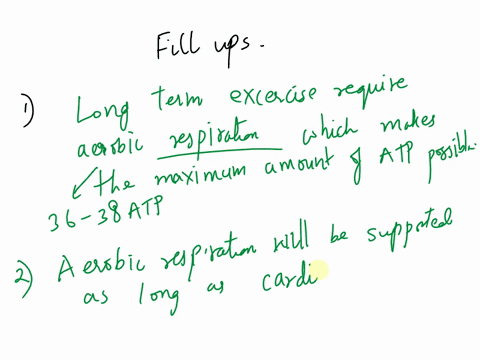 Fill ups.
1) Long term excercise require
aerobic respiration which makes
the maximum amount of ATP possible.
36-38 ATP
2) Aerobic respiration will be supported
as long as cardi